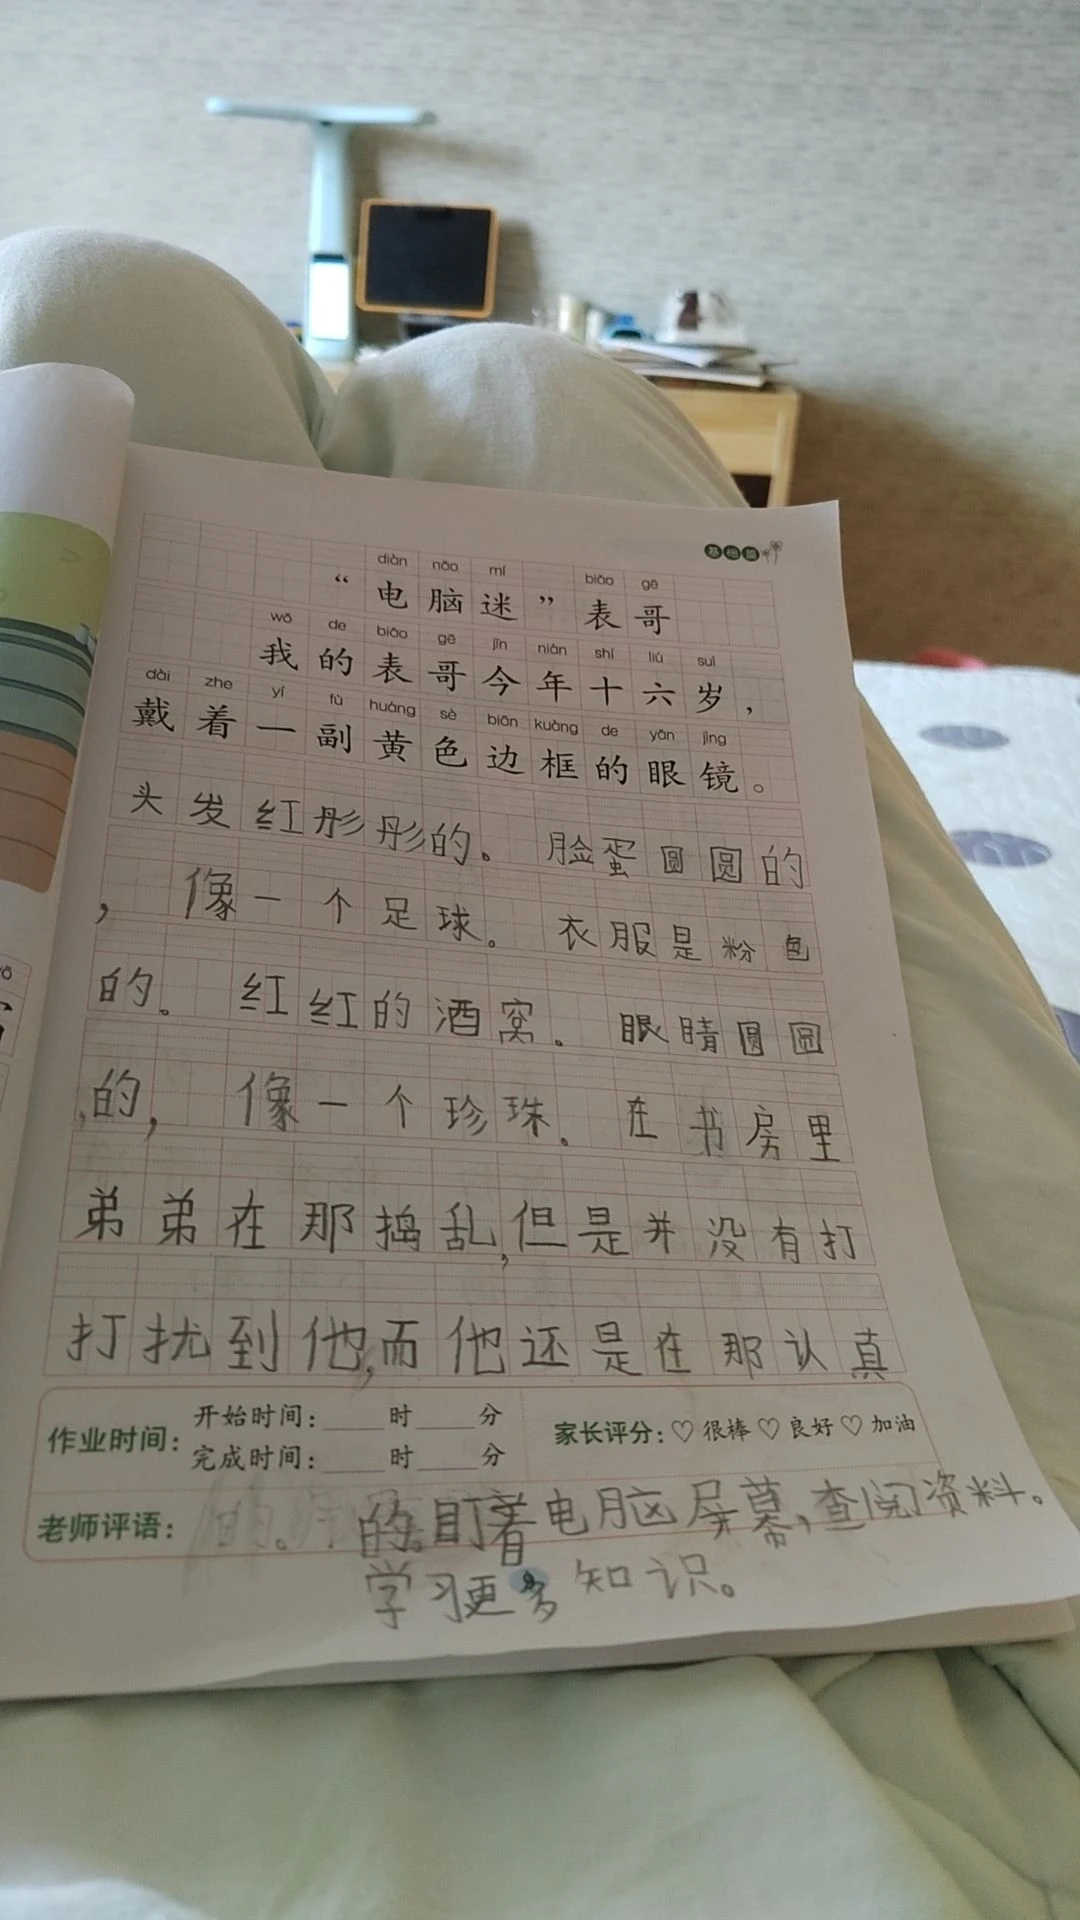 基础篇
diàn nǎo mí biǎo gē
“电脑迷”表哥
wǒ de biǎo gē jīn nián shí liù suì
我的表哥今年十六岁，
dài zhe yí fù huáng sè biān kuàng de yǎn jìng
戴着一副黄色边框的眼镜。
头发红彤彤的。脸蛋圆圆的
，像一个足球。衣服是粉色
的。红红的酒窝。眼睛圆圆
的，像一个珍珠。在书房里
弟弟在那捣乱,但是并没有打
打扰到他,而他还是在那认真
作业时间：开始时间：____时____分
完成时间：____时____分
家长评分：♡很棒♡良好♡加油
老师评语：
的盯着电脑屏幕,查阅资料。
学习更多知识。